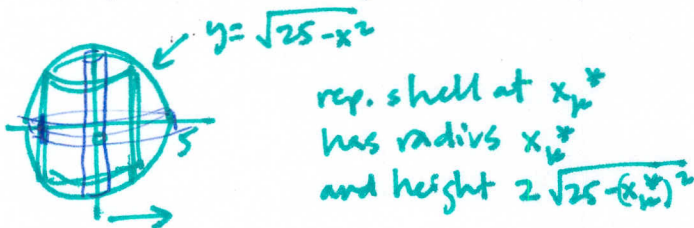 y = √25-x²
rep. shell at xₖ*
has radius xₖ*
5
and height 2√25-(xₖ*)²